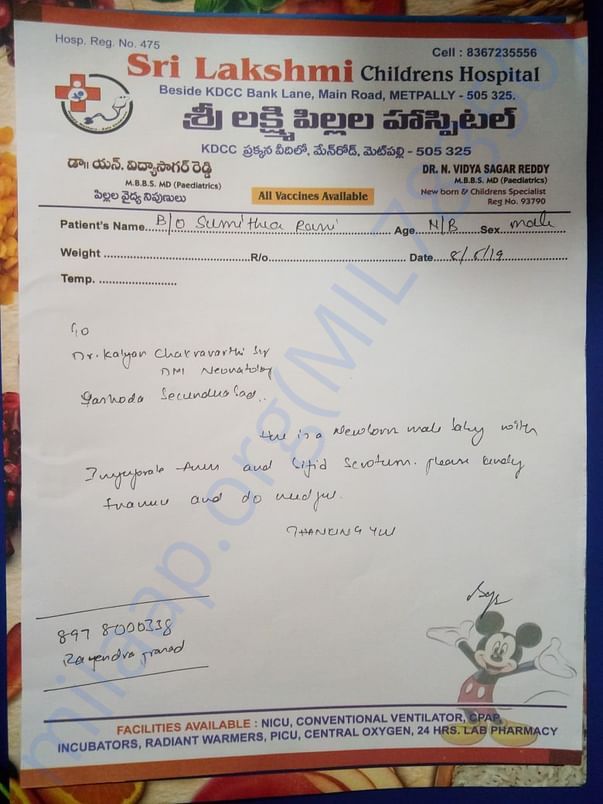 Hosp. Reg. No. 475
Cell : 8367235556
Sri Lakshmi Childrens Hospital
Beside KDCC Bank Lane, Main Road, METPALLY - 505 325.
శ్రీ లక్ష్మి పిల్లల హాస్పిటల్
KDCC ప్రక్కన వీదిలో, మేన్‌రోడ్, మెట్‌పల్లి - 505 325
డా॥ యన్. విద్యాసాగర్ రెడ్డి
M.B.B.S. MD (Paediatrics)
పిల్లల వైద్య నిపుణులు
All Vaccines Available
DR. N. VIDYA SAGAR REDDY
M.B.B.S. MD (Paediatrics)
New born & Childrens Specialist
Reg No. 93790
Patient's Name B/O Sumithra Rani Age N/B Sex male
Weight R/o Date 8/5/19
Temp.
To
Dr. Kalyan Chakravarthi Sir
DM Neonatology
Yashoda Secunderabad..
a Newborn male baby with
Anus and bifid Scrotum. please kindly
and do needful.
THANKING YOU
897 8000338
Rajendra prasad
FACILITIES AVAILABLE : NICU, CONVENTIONAL VENTILATOR, CPAP,
INCUBATORS, RADIANT WARMERS, PICU, CENTRAL OXYGEN, 24 HRS. LAB PHARMACY